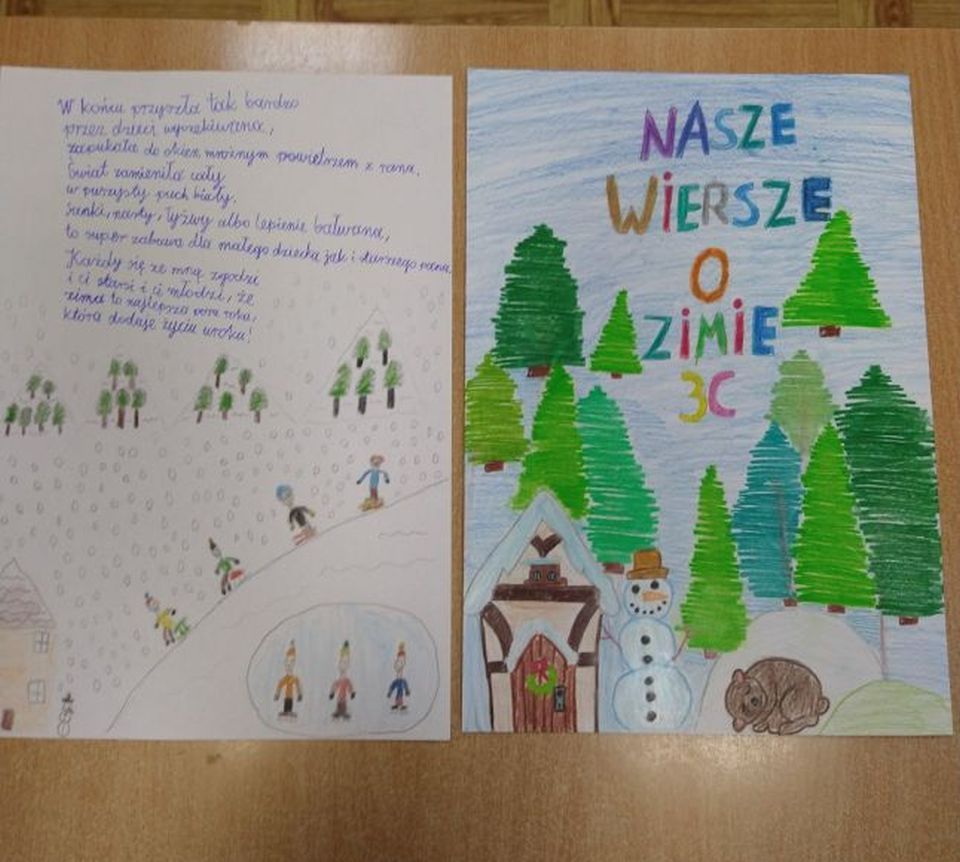 W końcu przyszła tak bardzo
przez dzieci wyczekiwana,
zapukała do okien mroźnym powietrzem z rana.
Świat zamieniła cały
w puszysty puch biały.
Sanki, narty, łyżwy albo lepienie bałwana,
to super zabawa dla małego dziecka jak i starszego pana.
Każdy się ze mną zgodzi
i ci starsi i ci młodzi, że
zima to najlepsza pora roku,
która dodaje życiu uroku!
NASZE
WiERSZE
O
ZiMiE
3C